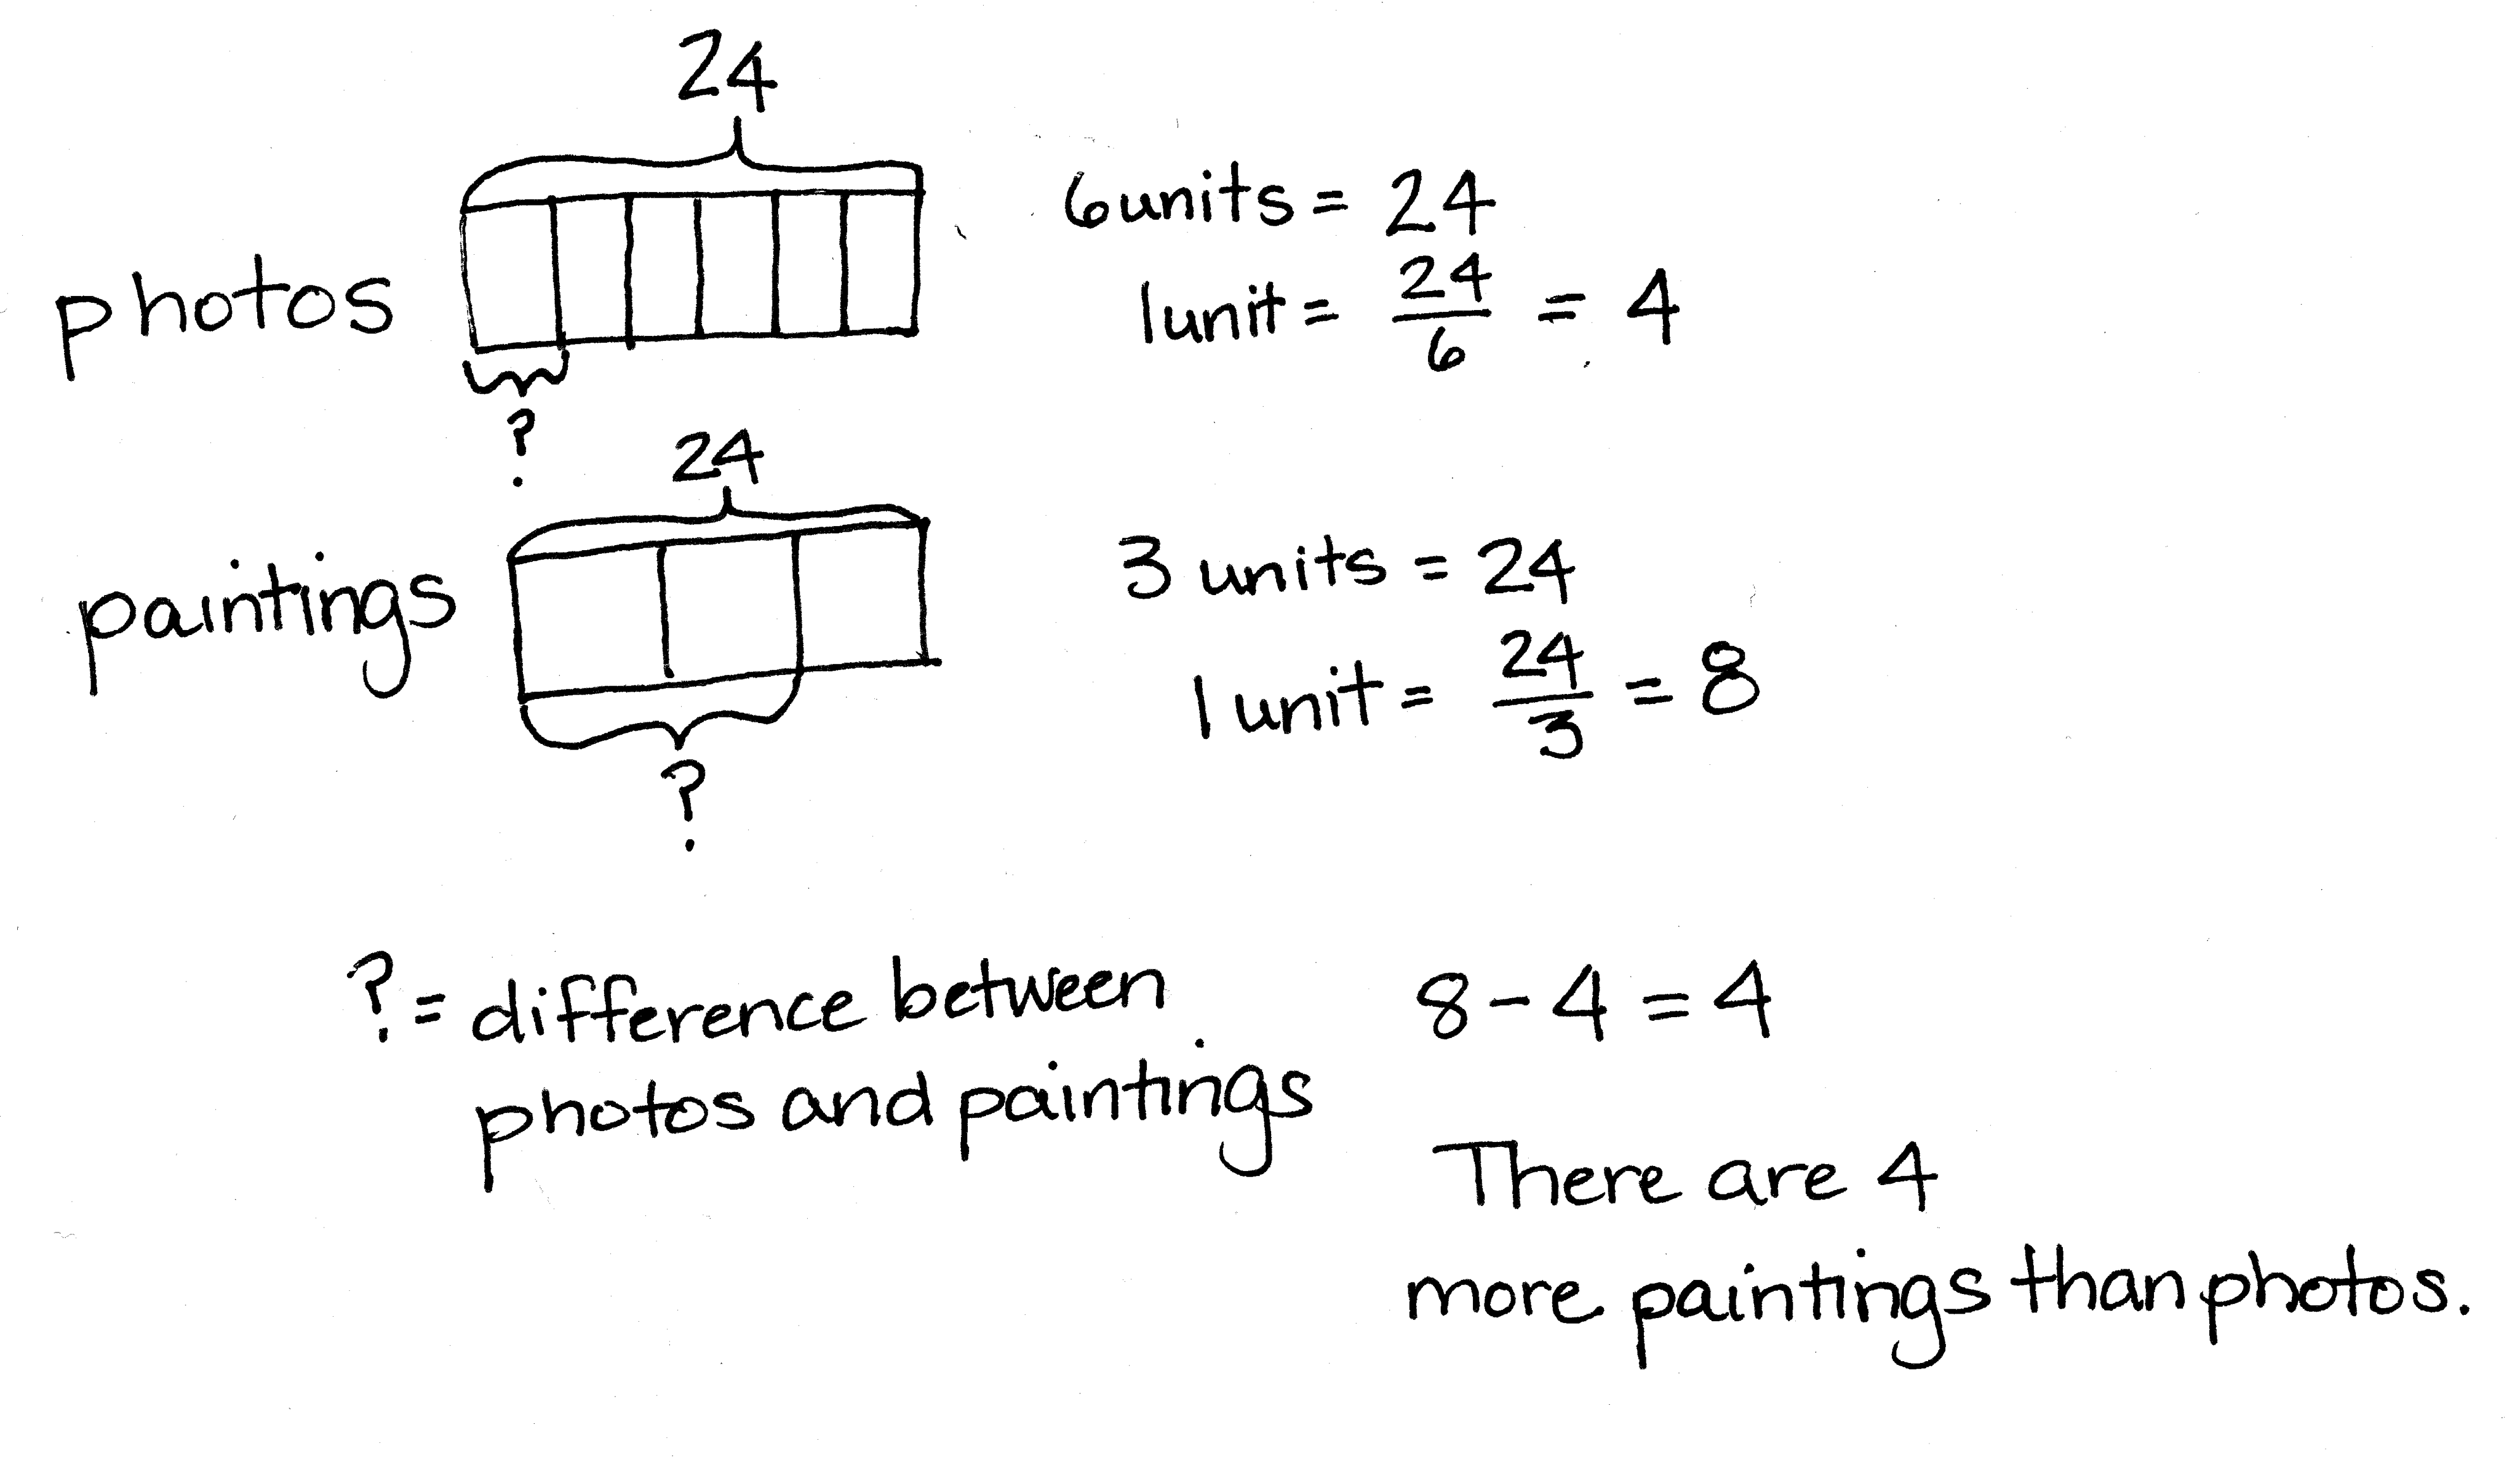 24
photos
6 units = 24
1 unit = 24/6 = 4
?
24
paintings
3 units = 24
1 unit = 24/3 = 8
?
? = difference between
photos and paintings
8 - 4 = 4
There are 4
more paintings than photos.